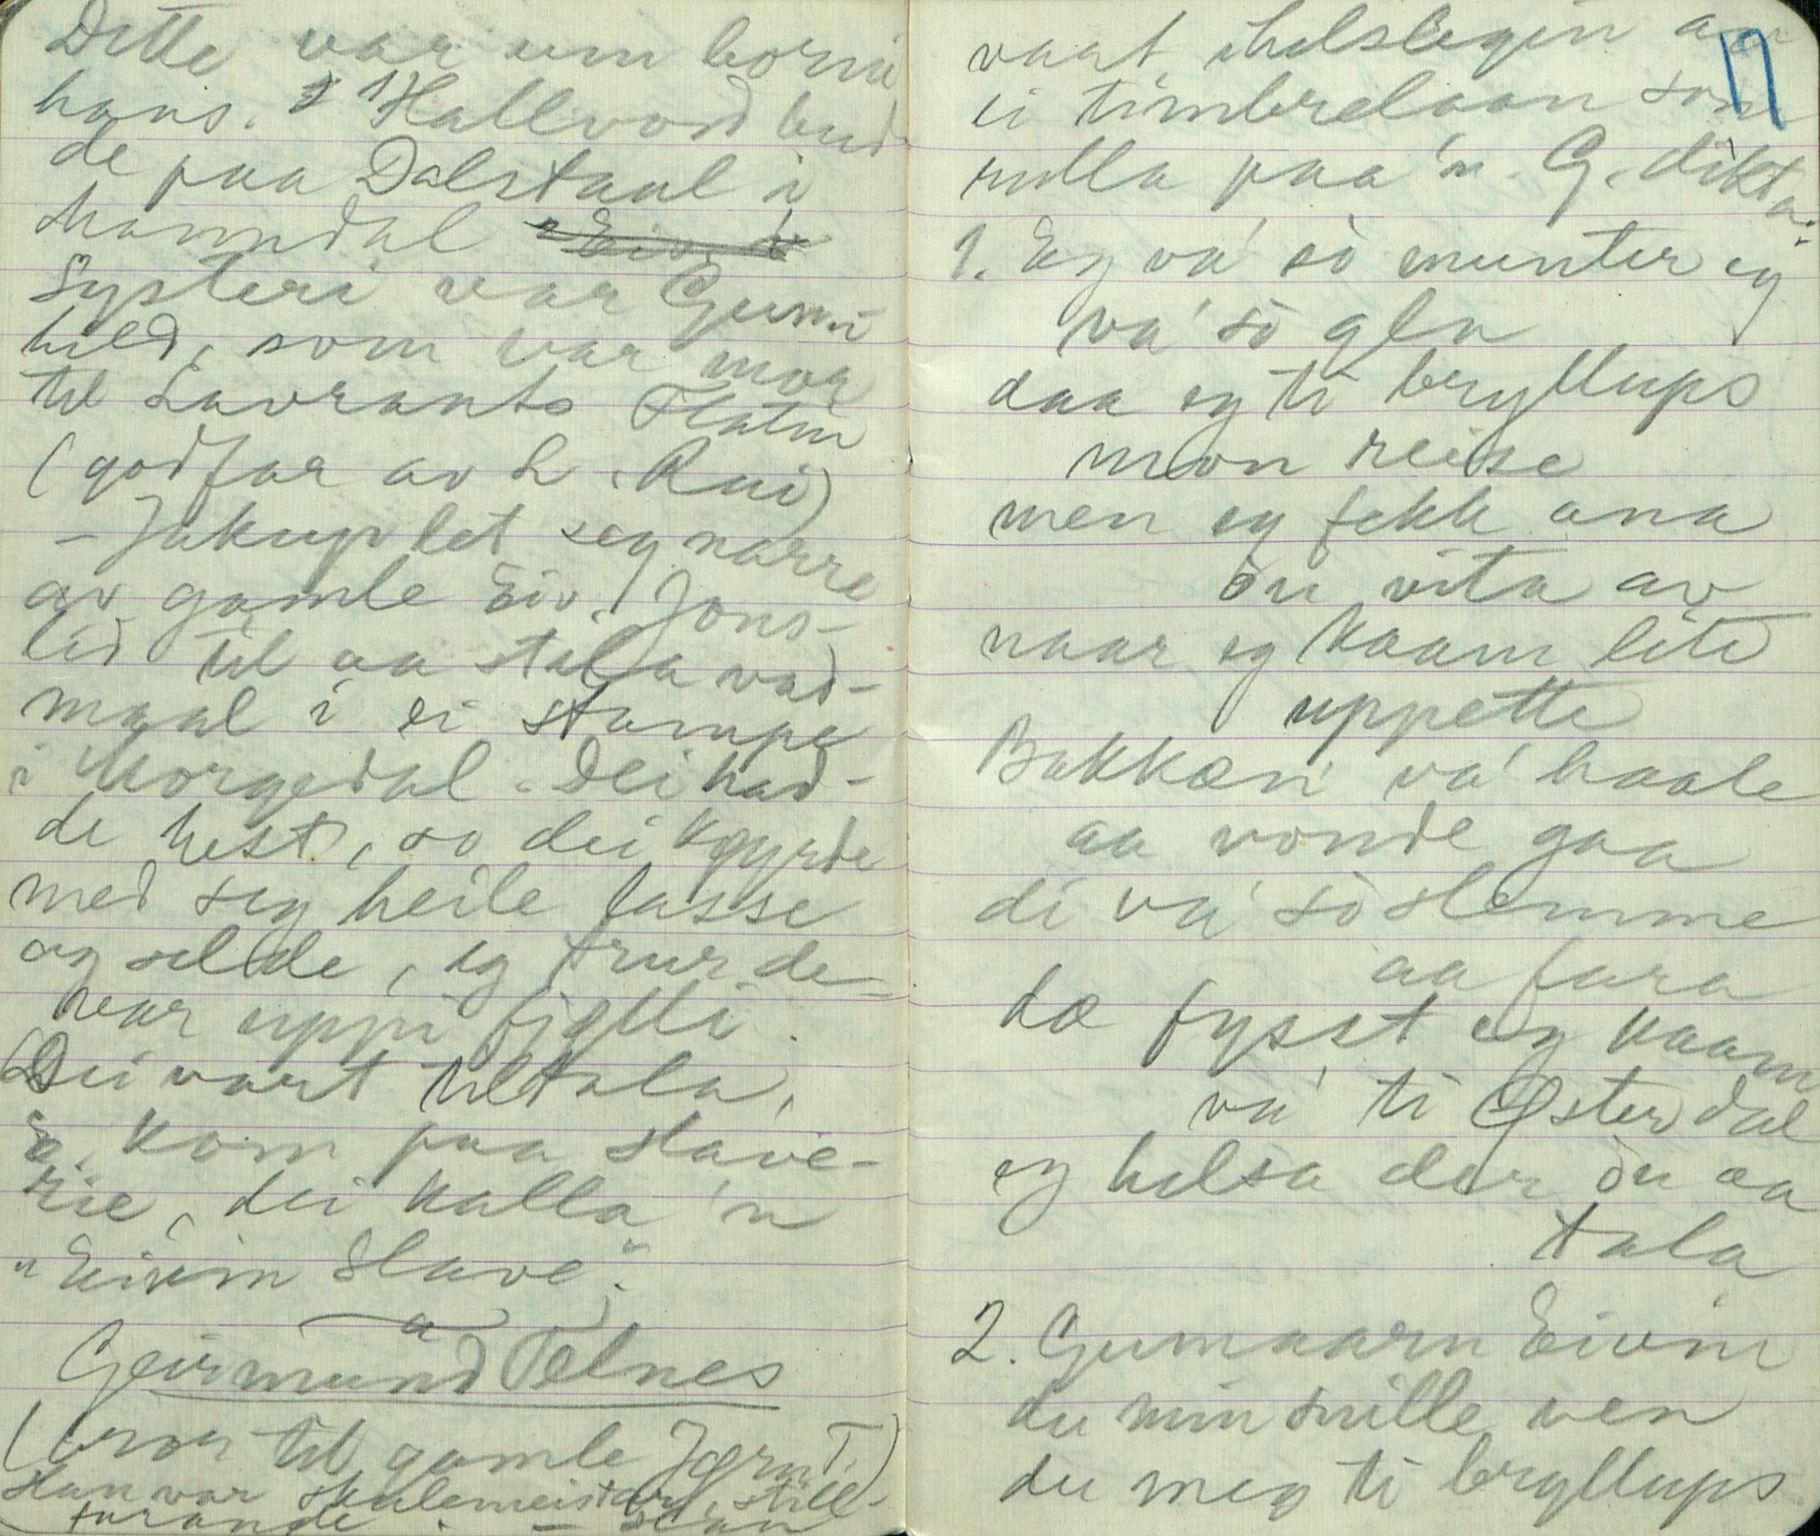 Dette var um borni
hans. 1) Hallvord bud
de paa Dalstaul i
Manndal
Systeri var Gunn
hild, som var mor
til Lavrants Flatin
(godfar av L. Rui)
- Jakup let seg narre
av gamle Eiv. Jons-
lid til aa stela vad-
maal i ei stampe
i Morgedal. Dei had-
de hest, so dei kjyrde
med seg heile lasse
og selde, eg trur de-
var uppi fjølli.
Dei vart tiltala,
kom paa slave-
rie, dei kalla 'n
"Eivin Slave".
Geirmund Telnes
(bror til gamle Jørn T.)
Han var skulemeistar, still-
farande
17
vart ihelslegin av
ei timbrelaan som
rulla paa 'n. G. dikta:
1. Eg va' so munter eg
va' so gla
daa eg ti bryllups
mon reise
men eg fekk ana
ou vita av
naar eg kaam lite
uppette
Bakkæn va' haale
aa vonde gaa
di va' so slemme
aa fara
dæ fysst eg kaam
va' ti Østerdal
eg helsa der ou aa
tala
2. Gumaarn Eivin
du min snille ven
du meg ti bryllups